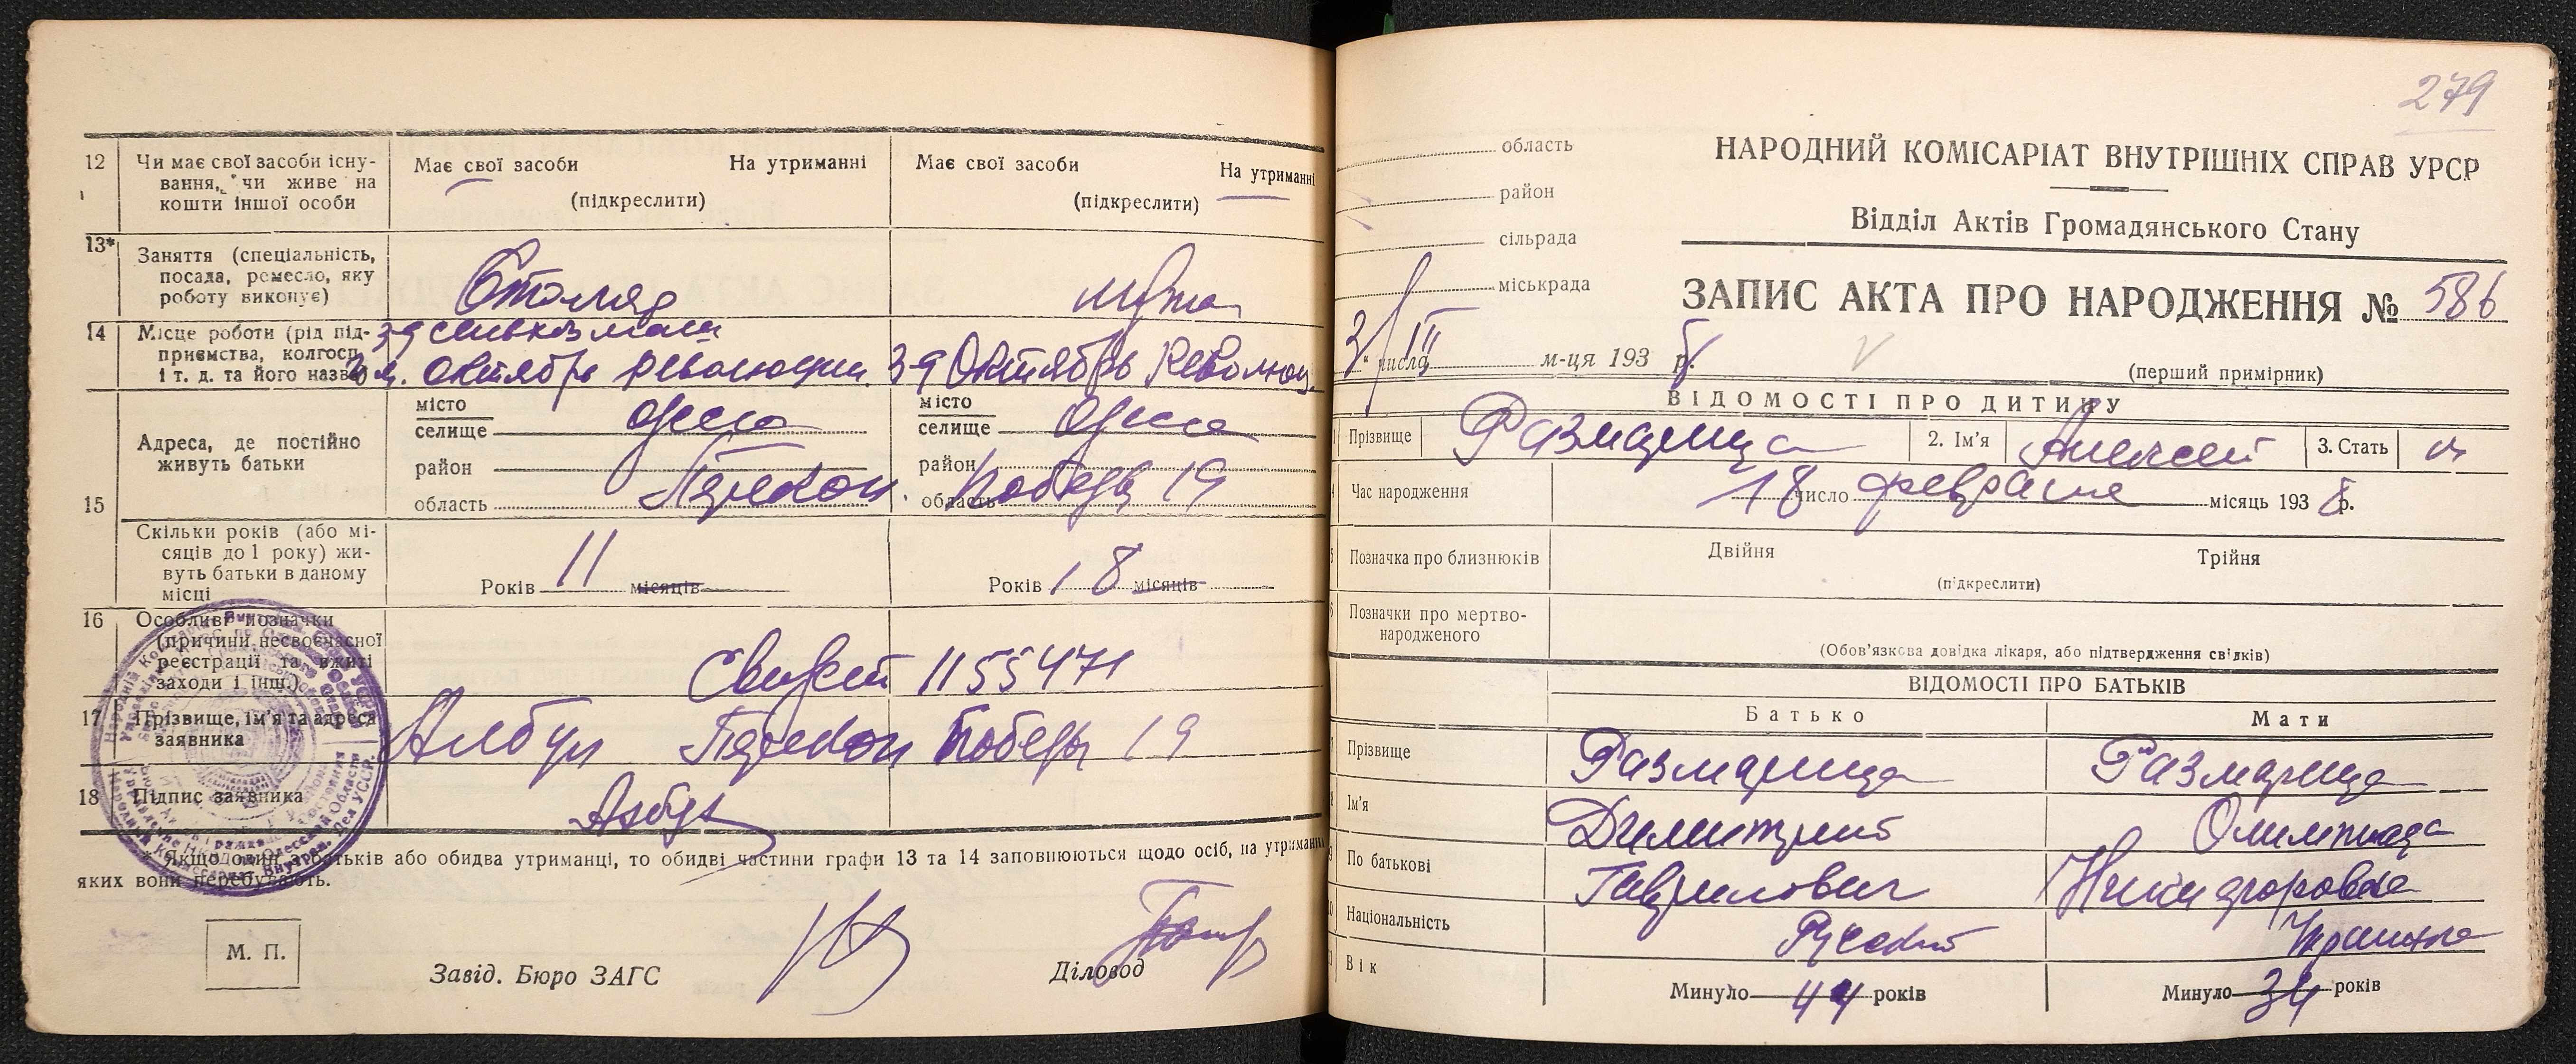 12 Чи має свої засоби існу-
вання, чи живе на
кошти іншої особи
Має свої засоби На утриманні
(підкреслити)
Має свої засоби На утриманні
(підкреслити)
13* Заняття (спеціальність,
посада, ремесло, яку
роботу виконує)
Столяр
14 Місце роботи (рід під-
приємства, колгосп
і т. д. та його назва)
им. Октябрь революции
зд Октябрь Революц.
15 Адреса, де постійно
живуть батьки
місто
селище Одесса
район
область Пересып.
місто
селище Одесса
район
область Победы 19
Скільки років (або мі-
сяців до 1 року) жи-
вуть батьки в даному
місці
Років 11 місяців
Років 18 місяців
16 Особливі позначки
(причини несвоєчасної
реєстрації та вжиті
заходи і інш.)
1155471
17 Прізвище, ім'я та адреса
заявника
Албул Победы 19
18 Підпис заявника
* Якщо один з батьків або обидва утриманці, то обидві частини графи 13 та 14 заповнюються щодо осіб, на утриманні
яких вони перебувають.
М. П.
Завід. Бюро ЗАГС
Діловод
279
область
район
сільрада
міськрада
3/III
" числа м-ця 193 8 р.
НАРОДНИЙ КОМІСАРІАТ ВНУТРІШНІХ СПРАВ УРСР
Відділ Актів Громадянського Стану
ЗАПИС АКТА ПРО НАРОДЖЕННЯ № 586
(перший примірник)
ВІДОМОСТІ ПРО ДИТИНУ
1 Прізвище Размарица 2. Ім'я Алексей 3. Стать м
4 Час народження 18 число февраля місяць 193 8 р.
5 Позначка про близнюків Двійня Трійня
(підкреслити)
6 Позначки про мертво-
народженого
(Обов'язкова довідка лікаря, або підтвердження свідків)
ВІДОМОСТІ ПРО БАТЬКІВ
Батько Мати
7 Прізвище Размарица Размарица
8 Ім'я Димитрий Олимпиада
9 По батькові Гаврилович Никифоровна
10 Національність Русский Украинка
11 Вік Минуло 44 років Минуло 34 років